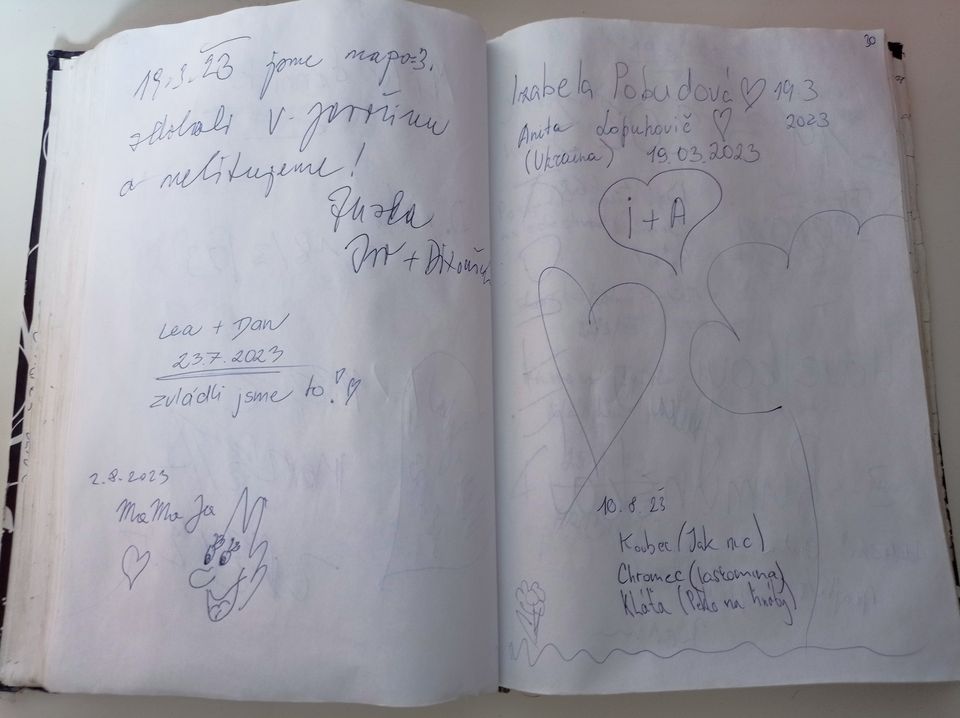 19.3.23 jsme napo-3.
zdolali V.
a nelitujeme!
Zuzka
Lea + Dan
23.7.2023
zvládli jsme to!
2.8.2023
MaMa Ja
30
Izabela Pobudová 19.3
2023
Anita Lopuhovič
(Ukraina) 19.03.2023
j + A
10.8.23
Koubec (Jak nic)
Chromec (Laskomina)
Kláťa (Péko na hnáty)